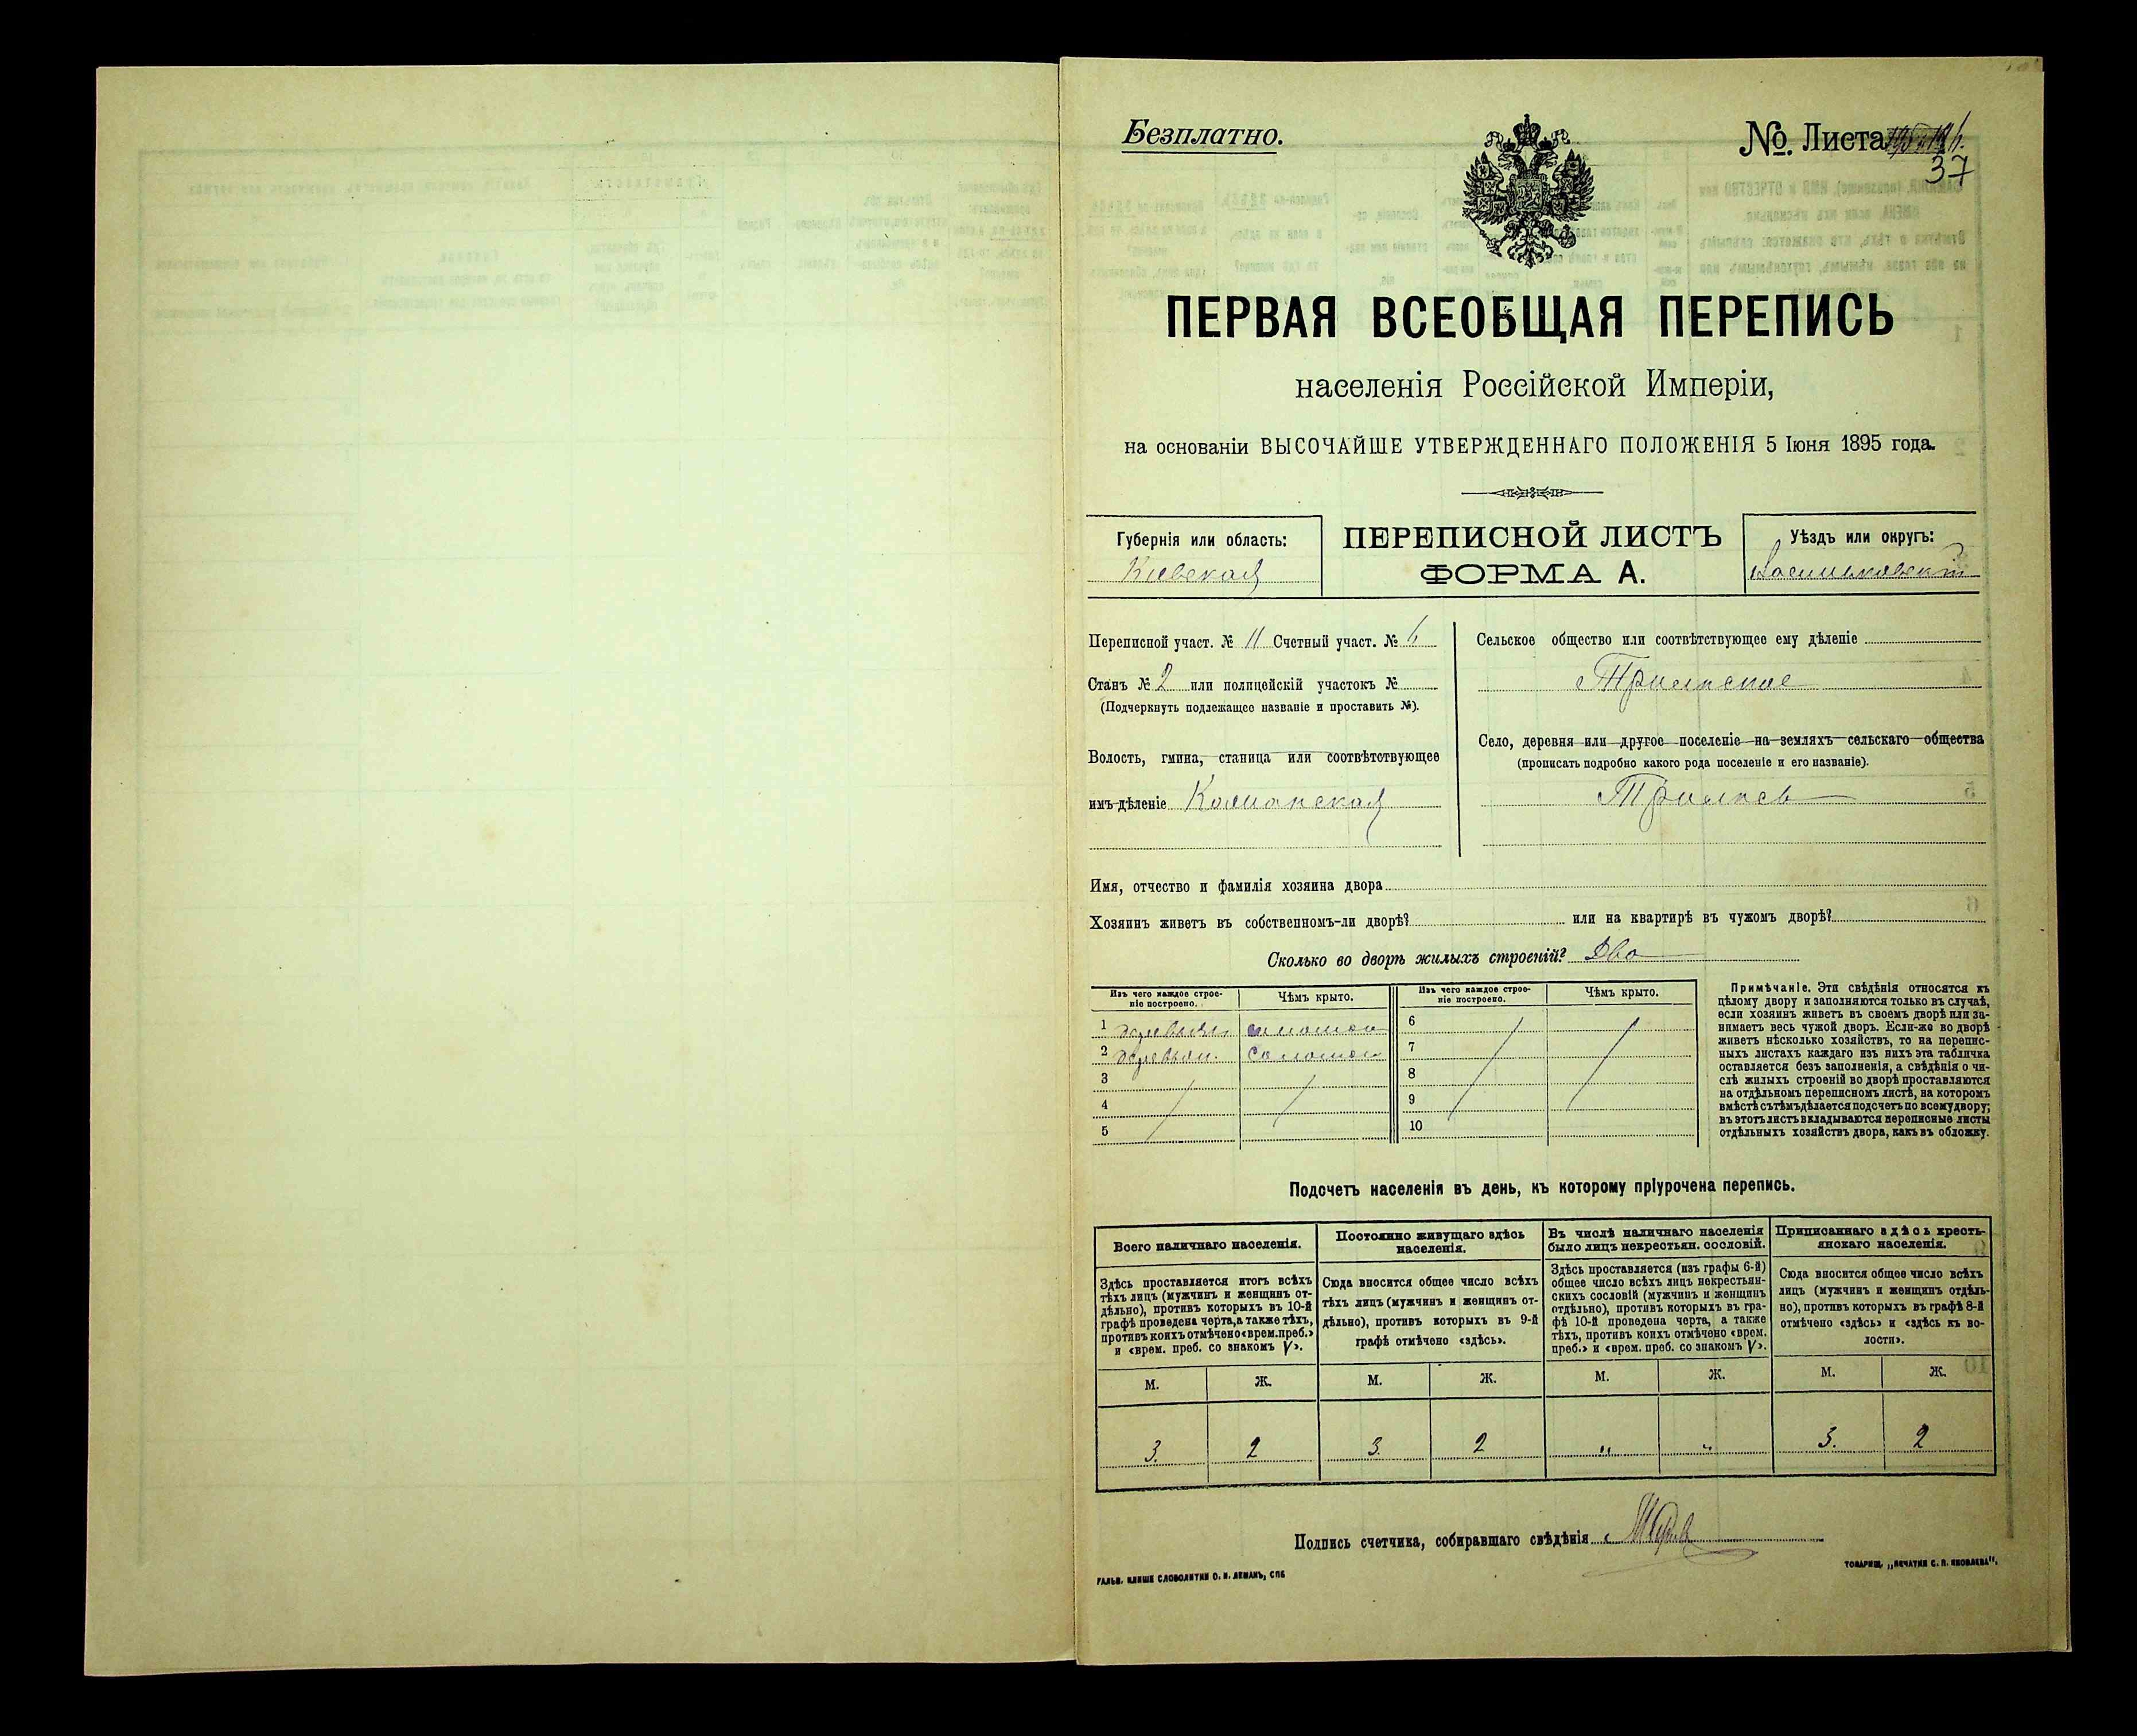 Безплатно.
№ Листа
37
ПЕРВАЯ ВСЕОБЩАЯ ПЕРЕПИСЬ
населенія Россійской Имперіи,
на основаніи ВЫСОЧАЙШЕ УТВЕРЖДЕННАГО ПОЛОЖЕНІЯ 5 Іюня 1895 года.
Губернія или область:
Кіевская
ПЕРЕПИСНОЙ ЛИСТЪ
ФОРМА А.
Уѣздъ или округъ:
Васильковскій
Переписной участ. № 11 Счетный участ. № 6
Станъ № 2 или полицейскій участокъ №
(Подчеркнуть подлежащее названіе и проставить №).
Волость, гмина, станица или соотвѣтствующее
имъ дѣленіе
Сельское общество или соотвѣтствующее ему дѣленіе
Трилѣское
Село, деревня или другое поселеніе на земляхъ сельскаго общества
(прописать подробно какого рода поселеніе и его названіе).
Имя, отчество и фамилія хозяина двора
Хозяинъ живетъ въ собственномъ-ли дворѣ? или на квартирѣ въ чужомъ дворѣ?
Сколько во дворѣ жилыхъ строеній? Два
Изъ чего каждое строе-
ніе построено.
Чѣмъ крыто.
Изъ чего каждое строе-
ніе построено.
Чѣмъ крыто.
1 соломой
2 соломой
3
4
5
6
7
8
9
10
Примѣчаніе. Эти свѣдѣнія относятся къ
цѣлому двору и заполняются только въ случаѣ,
если хозяинъ живетъ въ своемъ дворѣ или за-
нимаетъ весь чужой дворъ. Если-же во дворѣ
живетъ нѣсколько хозяйствъ, то на перепис-
ныхъ листахъ каждаго изъ нихъ эта табличка
оставляется безъ заполненія, а свѣдѣнія о чи-
слѣ жилыхъ строеній во дворѣ проставляются
на отдѣльномъ переписномъ листѣ, на которомъ
вмѣстѣ съ тѣмъ дѣлается подсчетъ по всему двору;
въ этотъ листъ вкладываются переписные листы
отдѣльныхъ хозяйствъ двора, какъ въ обложку.
Подсчетъ населенія въ день, къ которому пріурочена перепись.
Всего наличнаго населенія.
Здѣсь проставляется итогъ всѣхъ
тѣхъ лицъ (мужчинъ и женщинъ от-
дѣльно), противъ которыхъ въ 10-й
графѣ проведена черта, а также тѣхъ,
противъ коихъ отмѣчено «врем. преб.»
и «врем. преб. со знакомъ V».
Постоянно живущаго здѣсь
населенія.
Сюда вносится общее число всѣхъ
тѣхъ лицъ (мужчинъ и женщинъ от-
дѣльно), противъ которыхъ въ 9-й
графѣ отмѣчено «здѣсь».
Въ числѣ наличнаго населенія
было лицъ некрестьян. сословій.
Здѣсь проставляется (изъ графы 6-й)
общее число всѣхъ лицъ некрестьян-
скихъ сословій (мужчинъ и женщинъ
отдѣльно), противъ которыхъ въ гра-
фѣ 10-й проведена черта, а также
тѣхъ, противъ коихъ отмѣчено «врем.
преб.» и «врем. преб. со знакомъ V».
Приписаннаго здѣсь кресть-
янскаго населенія.
Сюда вносится общее число всѣхъ
лицъ (мужчинъ и женщинъ отдѣль-
но), противъ которыхъ въ графѣ 8-й
отмѣчено «здѣсь» и «здѣсь къ во-
лости».
М. Ж. М. Ж. М. Ж. М. Ж.
3. 2 3. 2 „ „ 3. 2
Подпись счетчика, собиравшаго свѣдѣнія
ГАЛЬВ. КЛИШЕ СЛОВОЛИТНИ О. И. ЛЕМАНЪ, СПБ
ТОВАРИЩ. „ПЕЧАТНЯ С. П. ЯКОВЛЕВА".